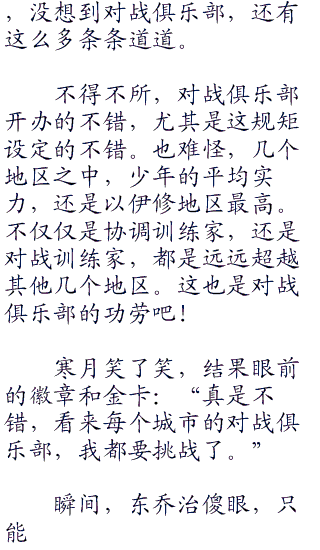 ，没想到对战俱乐部，还有
这么多条条道道。
不得不所，对战俱乐部
开办的不错，尤其是这规矩
设定的不错。也难怪，几个
地区之中，少年的平均实
力，还是以伊修地区最高。
不仅仅是协调训练家，还是
对战训练家，都是远远超越
其他几个地区。这也是对战
俱乐部的功劳吧！
寒月笑了笑，结果眼前
的徽章和金卡：“真是不
错，看来每个城市的对战俱
乐部，我都要挑战了。”
瞬间，东乔治傻眼，只
能